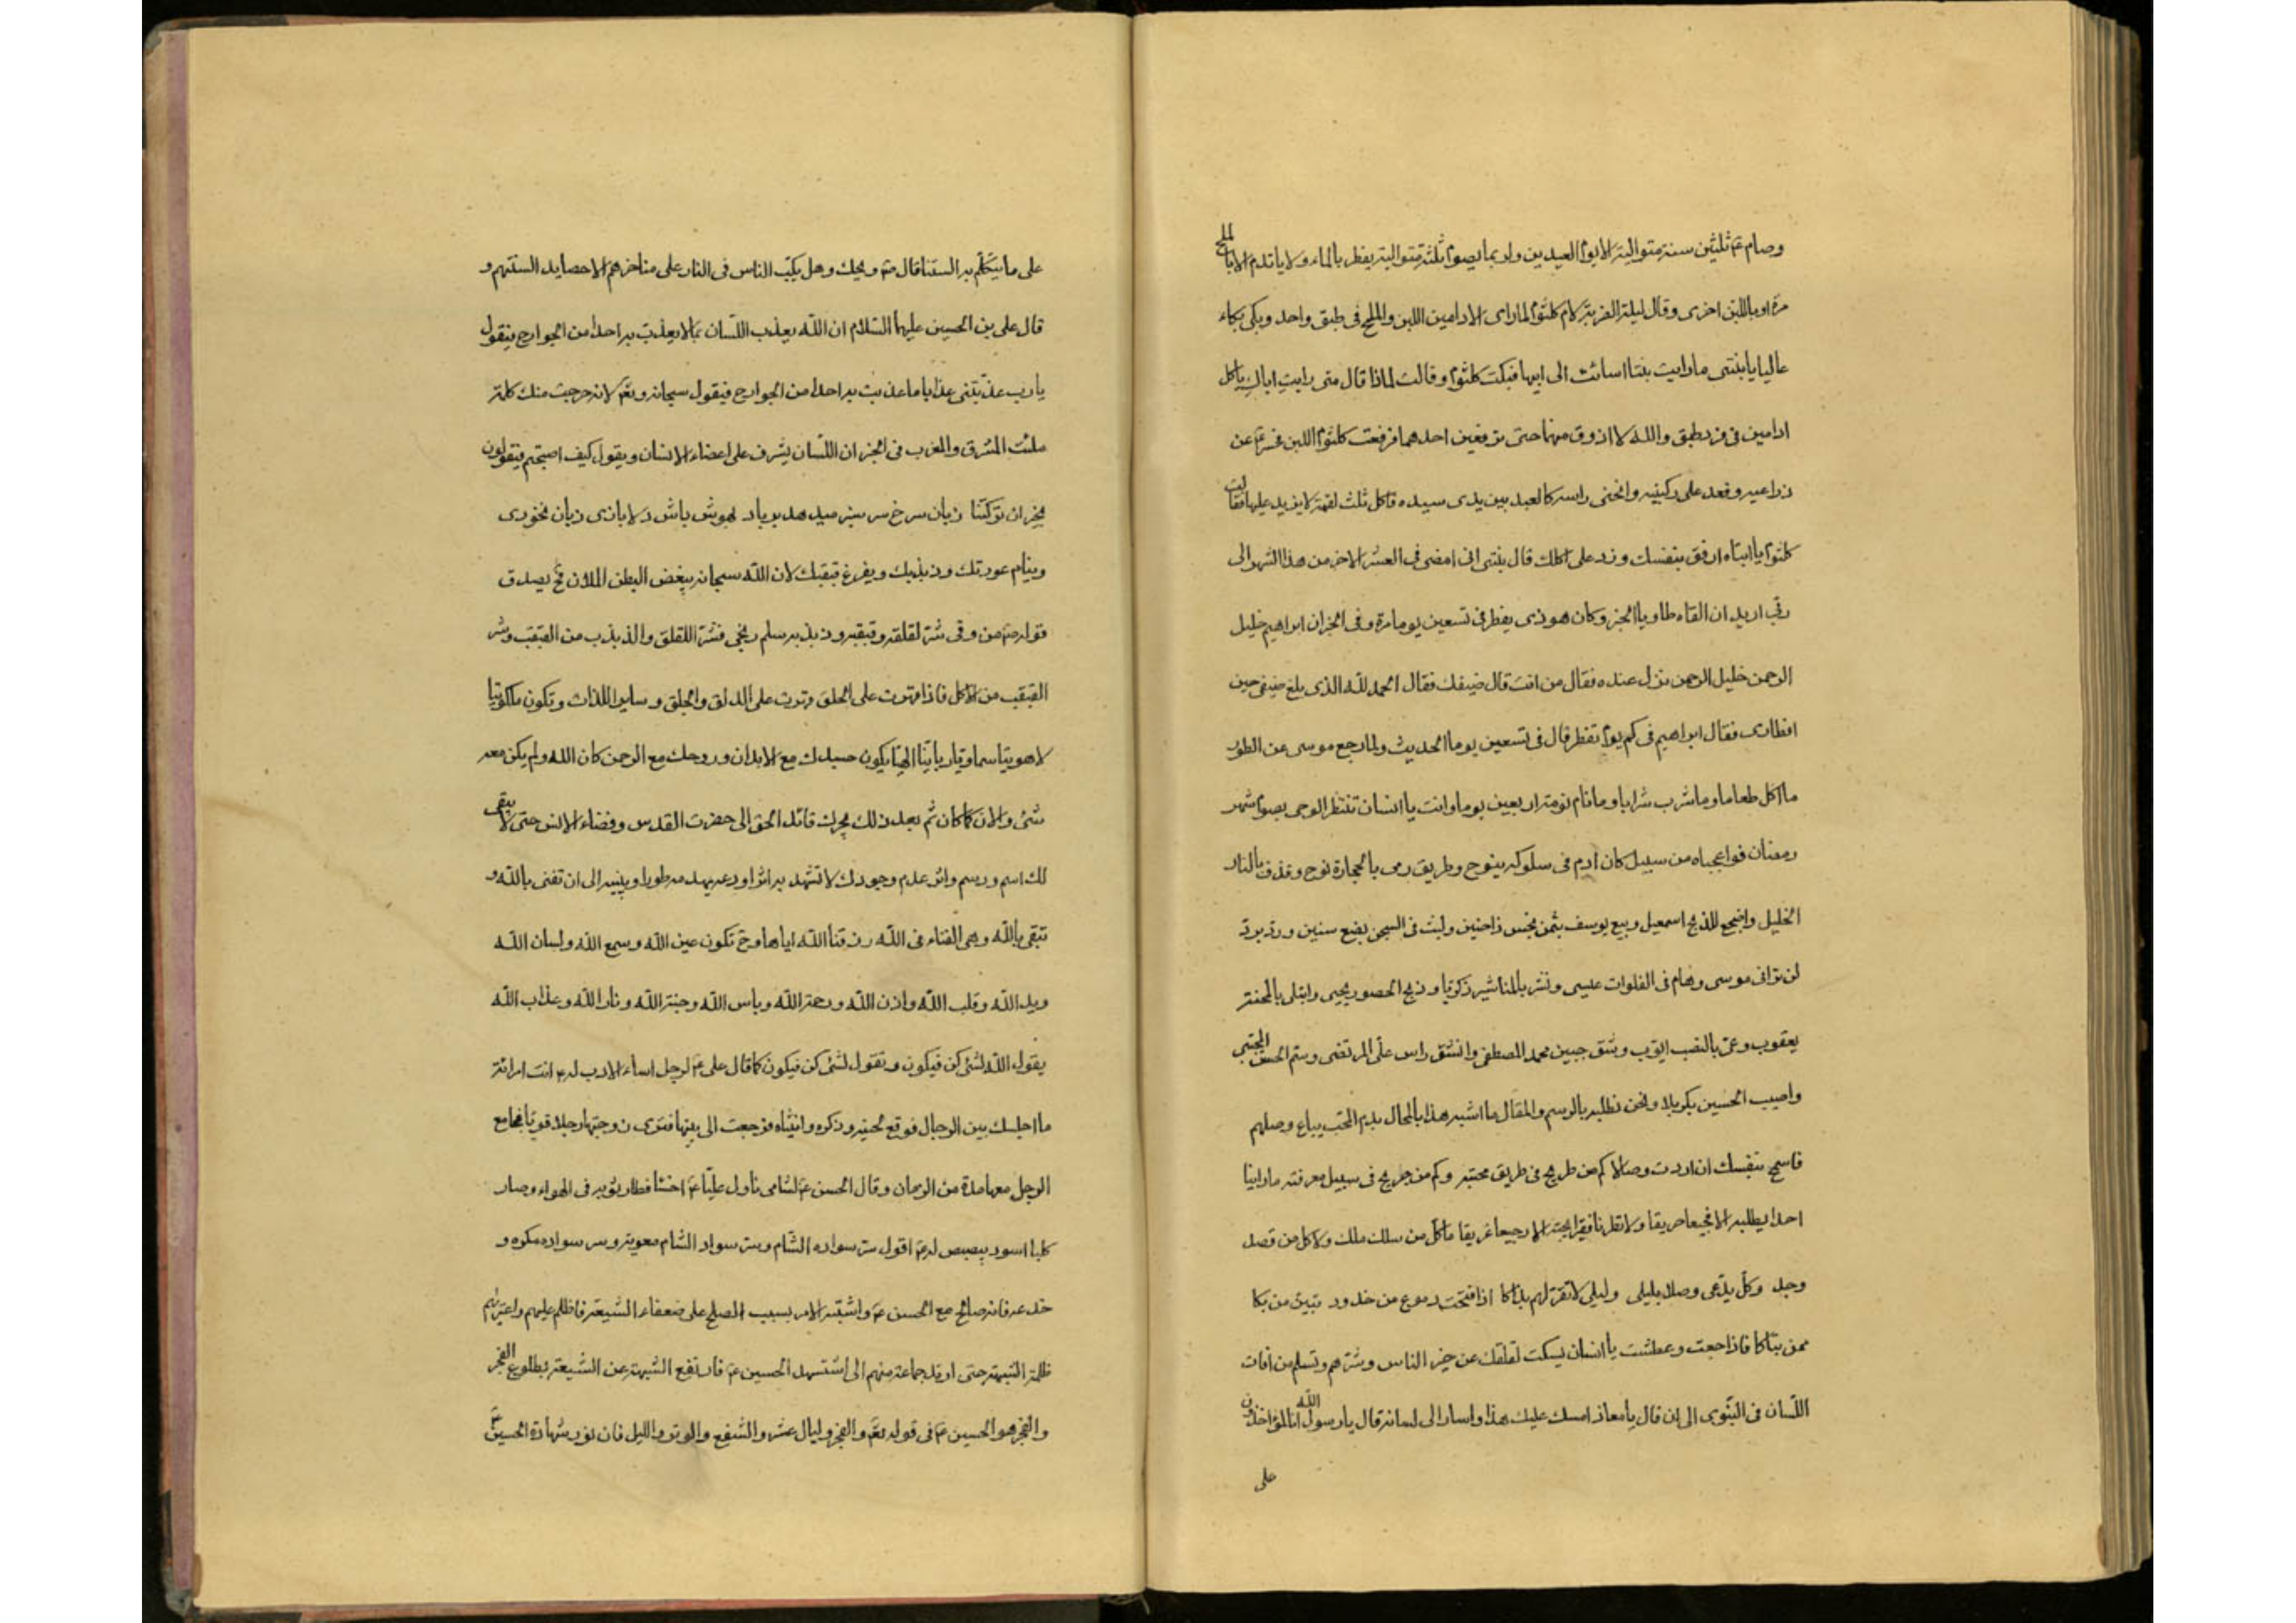 وصام ع ثلثين سنة متوالية الا يوم العيدين واربما يصوم ثلثة متوالية يفطر بالماء ولا ياتدم الا بالملح
مرة او باللبن اخرى وقال ليلة الضربة لام كلثوم لما راى الادامين اللبن والملح فى طبق واحد وبكى بكاء
عاليا يا بنتى ما رايت بنتا اسائت الى ابيها فبكت كلثوم وقالت لماذا قال متى رايت اباك ياكل
ادامين فى فرد طبق والله لا اذوق منها حتى ترفعين احدهما فرفعت كلثوم اللبن فحسر ع عن
ذراعيه وقعد على ركبتيه وانحنى راسه كالعبد بين يدى سيده فاكل ثلث لقمة لا يزيد عليها فقالت
كلثوم يا ابتاه ارفق بنفسك وزد على اكلك قال بنتى انى امضى فى العشر الاخر من هذا الشهر الى
ربى اريد ان القاه طاويا الخبر وكان هوذى يفطر فى تسعين يوما مرة وفى الخبر ان ابراهيم خليل
الرحمن خليل الرحمن نزل عنده فقال من انت قال ضيفك فقال الحمد لله الذى بلغ ضيفى حين
افطارى فقال ابراهيم فى كم يوم تفطر قال فى تسعين يوما الحديث ولما رجع موسى عن الطور
ما اكل طعاما وما شرب شرابا وما نام نومة اربعين يوما وانت يا انسان تنتظر الوحى بصوم شهر
رمضان فواعجباه من سبيل كان ادم فى سلوكه ينوح وطريق رمى بالحجارة نوح وقذف بالنار
الخليل واضجع للذبح اسمعيل وبيع يوسف بثمن بخس زاحنين ولبث فى السجن بضع سنين ورد برد
لن ترانى موسى وهام فى الفلوات عيسى ونشر بالمناشير زكريا وذبح الحصور يحيى وابتلى بالمحنة
يعقوب وعن بالنصب ايوب وشق جبين محمد المصطفى وانشق راس على المرتضى وستم الحسن المجتبى
واصيب الحسين بكربلا ونحن نطلبه بالرسم والمقال ما اشبه هذا بالمحال بدم المحب يباع وصلهم
فاسمح بنفسك ان اردت وصالا كم من طريح فى طريق محبته وكم من جريح فى سبيل معرفته ما راينا
احدا يطلبه الا فجيعا حريقا ولا نظرنا فقيرا بحبه الا رجيعا غريقا ما كل من سلك ملك ولا كل من قصد
وجد وكل يدعى وصلا بليلى وليلى لا تقر لهم بذاكا اذا فتحت دموع من خدود تبين من بكا
ممن تباكا فاذا جعت وعطشت يا انسان يسكت لقلقك عن خير الناس وشرهم وتسلم من افات
اللسان فى النبوى الى ان قال يا معاذ امسك عليك هذا واسار الى لسانه قال يا رسول الله انا لمؤاخذون
على
على ما يتكلم به السنتنا قال ص ويحك وهل يكب الناس فى النار على مناخرهم الا حصايد السنتهم و
قال على بن الحسين عليهما السلام ان الله يعذب اللسان بما لا يعذب به احدا من الجوارح فيقول
يا رب عذبتنى عذابا ما عذبت به احدا من الجوارح فيقول سبحانه وتع لانه خرجت منك كلمة
ملئت المشرق والمغرب فى الخبر ان اللسان يشرف على اعضاء الانسان ويقول كيف اصبحتم فيقولون
بخير ان تركتنا زبان سرخ سر سبز ميدهد بر باد بهوش باش دلا بازى زبان نخورى
وينام عورتك وذبذبك ويفرغ قبقبك لان الله سبحانه يبغض البطن الملان فح يصدق
قوله ص من وقى شر لقلقه وقبقبه وذبذبه سلم ونجى فشر اللقلق والذبذب من القبقب وشر
القبقب من الاكل فاذا قهرت على الحلق قهرت على الدلق والجلق وساير اللذات وتكون ملكوتيا
لاهوتيا سماويا ربانيا الهيا يكون جسدك مع الابدان وروحك مع الرحمن كان الله ولم يكن معه
شئ والان كما كان ثم بعد ذلك يجرك قائد الحق الى حضرت القدس وفضاء الانس حتى لا يبقى
لك اسم ورسم واثر عدم وجودك لا تشهد به اثرا ودعه يهدمه طورا ويبنيه الى ان تفنى بالله و
تبقى بالله وهى الفناء فى الله رزقنا الله اياها وح تكون عين الله وسمع الله ولسان الله
ويد الله وقلب الله واذن الله ورحمة الله وباس الله وجنة الله ونار الله وعذاب الله
يقول الله لشئ كن فيكون وتقول لشئ كن فيكون كما قال على ع لرجل اساء الادب له ع انت امرائة
ما اجلسك بين الرجال فوقع لحيته وذكره وانثياه فرجعت الى بيتها فترى زوجتها رجلا قويا فجامع
الرجل معها مدة من الزمان وقال الحسن ع لشامى ناول عليا ع اخسا فطار ثوبه فى الهواء وصار
كلبا اسود يبصبص له ع اقول سر سواده الشام وسر سواد الشام معوية وسر سواده مكره و
خدعه فانه صالح مع الحسن ع واشتبه الامر بسبب الصلح على ضعفاء الشيعة فاظلم عليهم واعتريهم
ظلمة الشبهة حتى ارتد جماعة منهم الى استشهد الحسين ع فارتفع الشبهة عن الشيعة بطلوع الفجر
والفجر هو الحسين ع فى قوله تع والفجر وليال عشر والشفع والوتر والليل فان نور شهادة الحسين ع